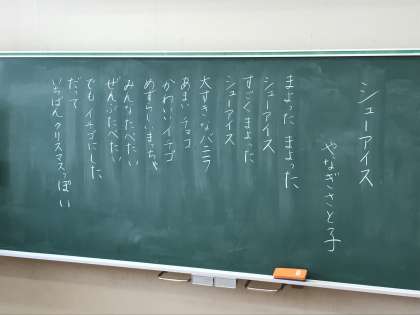 シューアイス
やなぎさと子
まよった まよった
シューアイス
すっごくまよった
シューアイス
大すきなバニラ
あまーいチョコ
かわいいイチゴ
めずらしいまっちゃ
みんなたべたい
ぜんぶたべたい
でもイチゴにした
だって
いちばんクリスマスっぽい